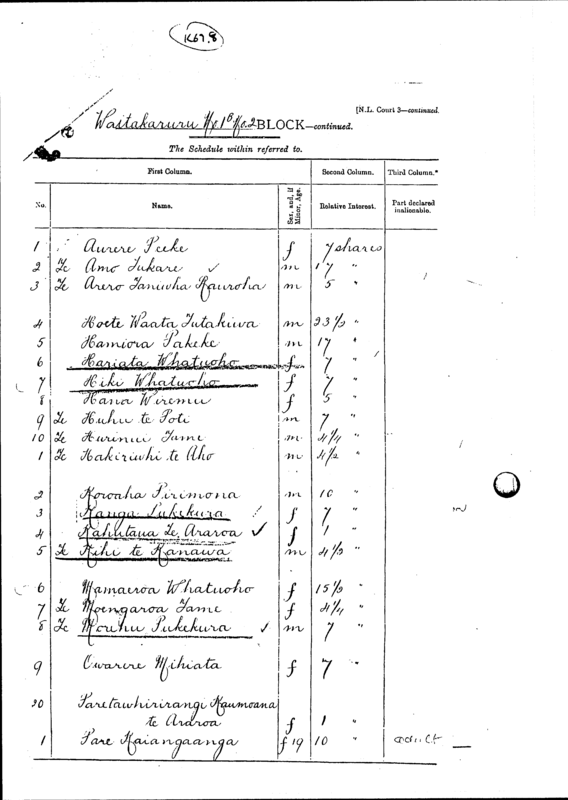 1K67.8
[N.L. Court 3—continued.
Waitakaruru No 1B No. 2 BLOCK—continued.
The Schedule within referred to.
First Column. Second Column. Third Column.*
No. Name. Sex, and, if Minor, Age. Relative Interest. Part declared inalienable.
1 Aurere Peeke f 7 shares
2 Te Amo Tukare m 17 "
3 Te Arero Taniwha Hauroha m 5 "
4 Hoete Waata Tutakiwa m 23 1/2 "
5 Hamiora Pakeke m 17 "
6 Hariata Whatuoho f 7 "
7 Hiki Whatuoho f 7 "
8 Hana Wiremu f 5 "
9 Te Huhu te Poti m 7 "
10 Te Hurinui Tame m 4 1/4 "
1 Te Hakiriwhi te Aho m 4 1/2 "
2 Kowaha Pirimona m 10 "
3 Kanga Pukekura f 7 "
4 Kahutaua Te Araroa f 1 "
5 Te Kihi te Kanawa m 4 1/2 "
6 Mamaeroa Whatuoho f 15 1/2 "
7 Te Moengaroa Tame f 4 1/4 "
8 Te Morehu Pukekura m 7 "
9 Owarere Mihiata f 7 "
20 Paretawhirirangi Kaumoana
te Araroa f 1 "
1 Pare Kaiangaanga f 19 10 "